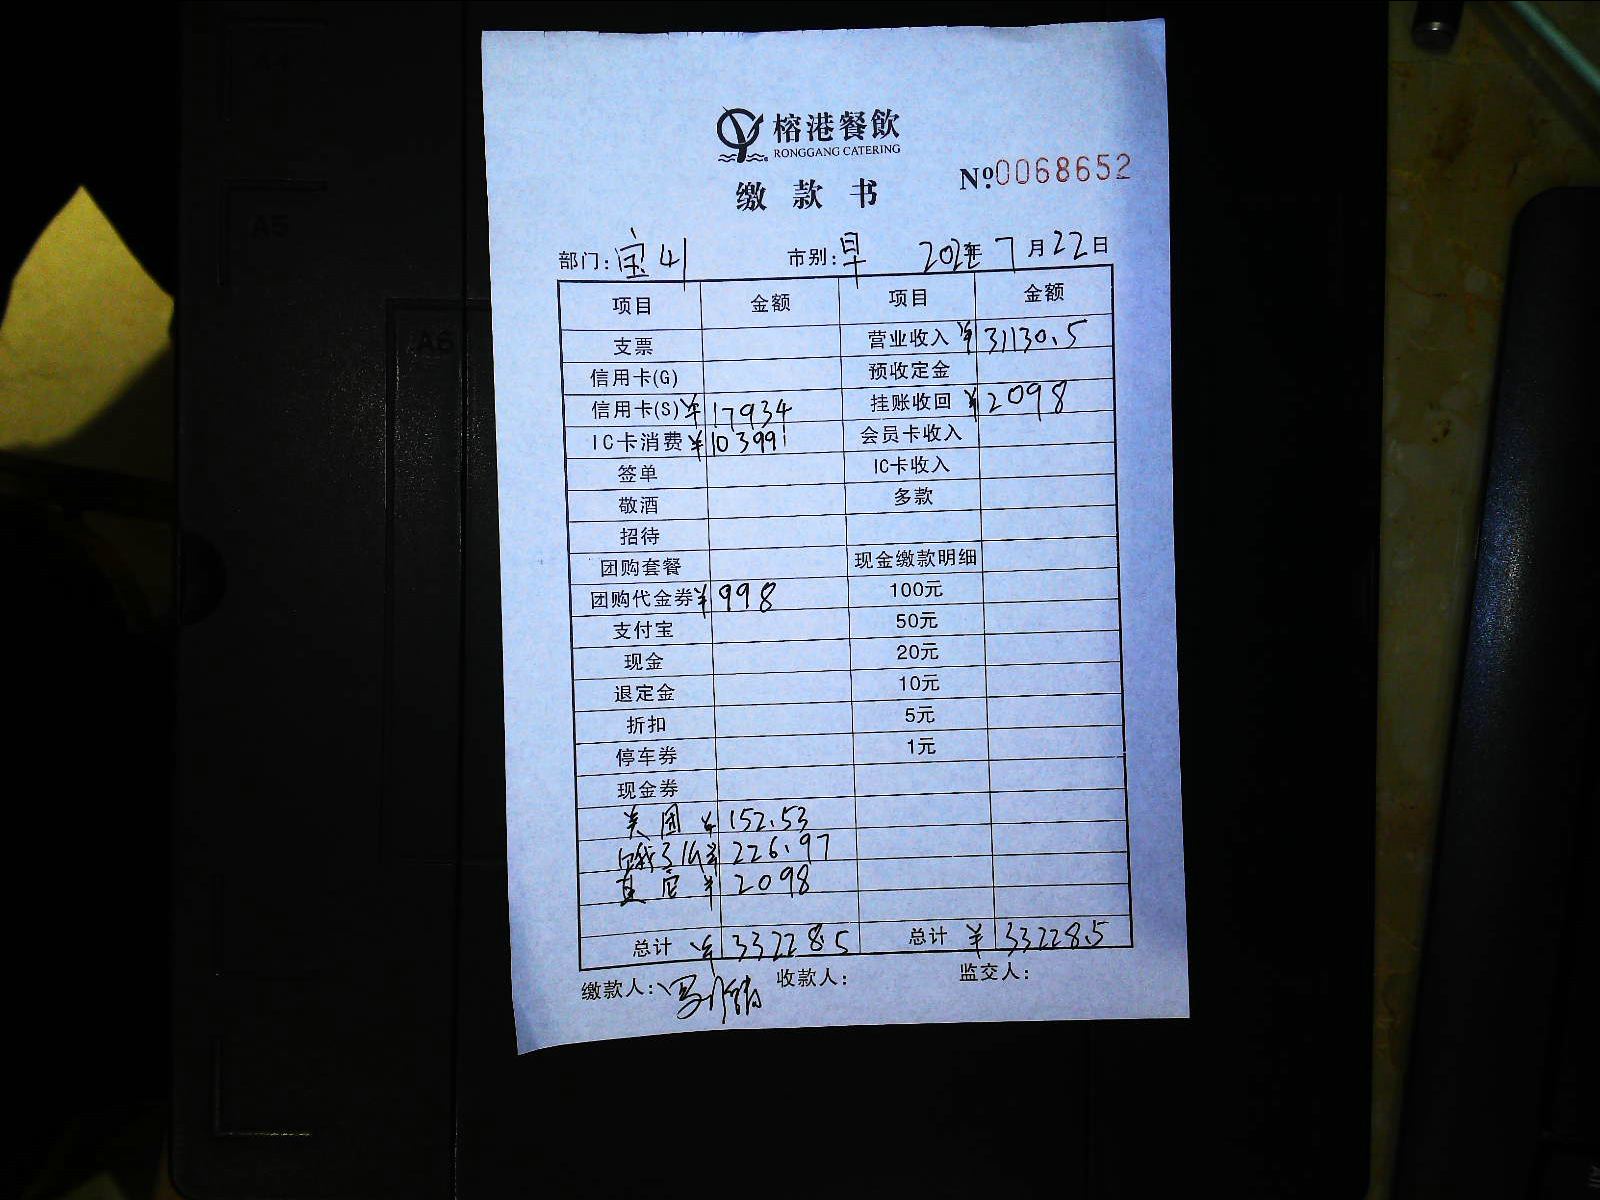 榕港餐飲
RONGGANG CATERING
缴款书
№0068652
部门: 市别:早 202年7月22日
项目 金额 项目 金额
支票 营业收入 ¥31130.5
信用卡(G) 预收定金
信用卡(S) ¥17934 挂账收回 ¥2098
IC卡消费 ¥103991 会员卡收入
签单 IC卡收入
敬酒 多款
招待
团购套餐 现金缴款明细
团购代金券 ¥998 100元
支付宝 50元
现金 20元
退定金 10元
折扣 5元
停车券 1元
现金券
美团 ¥152.53
饿了么 ¥226.97
¥2098
总计 ¥33228.5 总计 ¥33228.5
缴款人: 收款人: 监交人:
A4
A5
A6